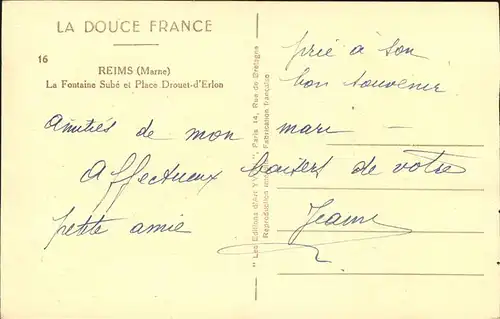 LA DOUCE FRANCE
16
REIMS (Marne)
La Fontaine Subé et Place Drouet-d'Erlon
" Les Editions d'Art Paris 14, Rue de Bretagne
Reproduction Fabrication française
prié à son
bon souvenir
Amitiés de mon mari —
Affectueux baisers de votre
petite amie Jeanne